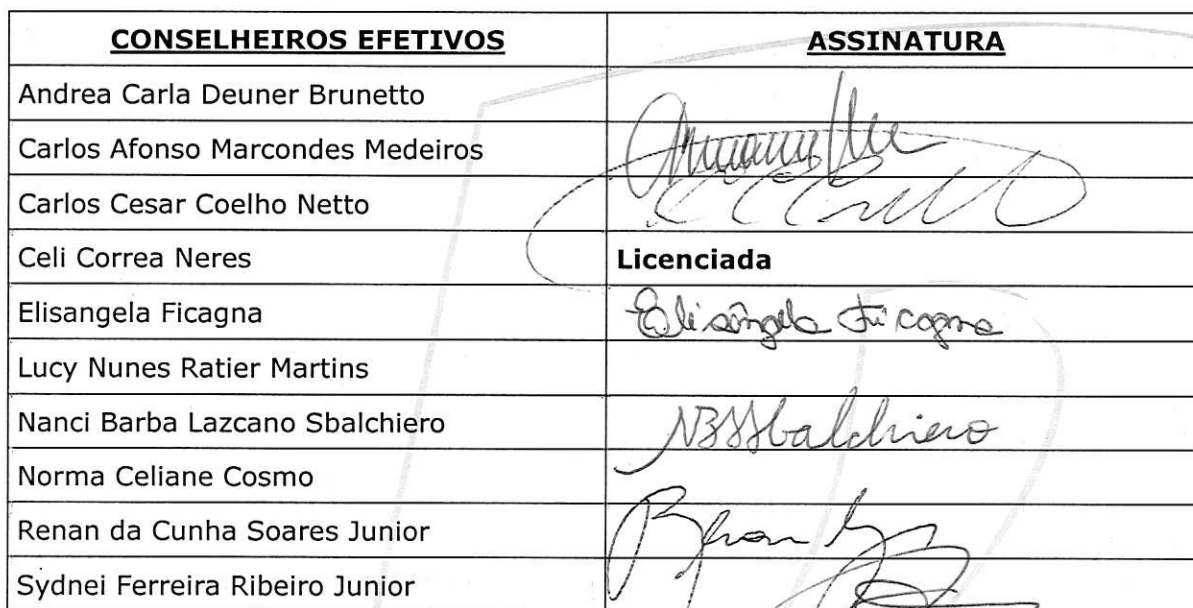 CONSELHEIROS EFETIVOS ASSINATURA
Andrea Carla Deuner Brunetto
Carlos Afonso Marcondes Medeiros
Carlos Cesar Coelho Netto
Celi Correa Neres Licenciada
Elisangela Ficagna Elisângela Ficagna
Lucy Nunes Ratier Martins
Nanci Barba Lazcano Sbalchiero NBLSbalchiero
Norma Celiane Cosmo
Renan da Cunha Soares Junior
Sydnei Ferreira Ribeiro Junior